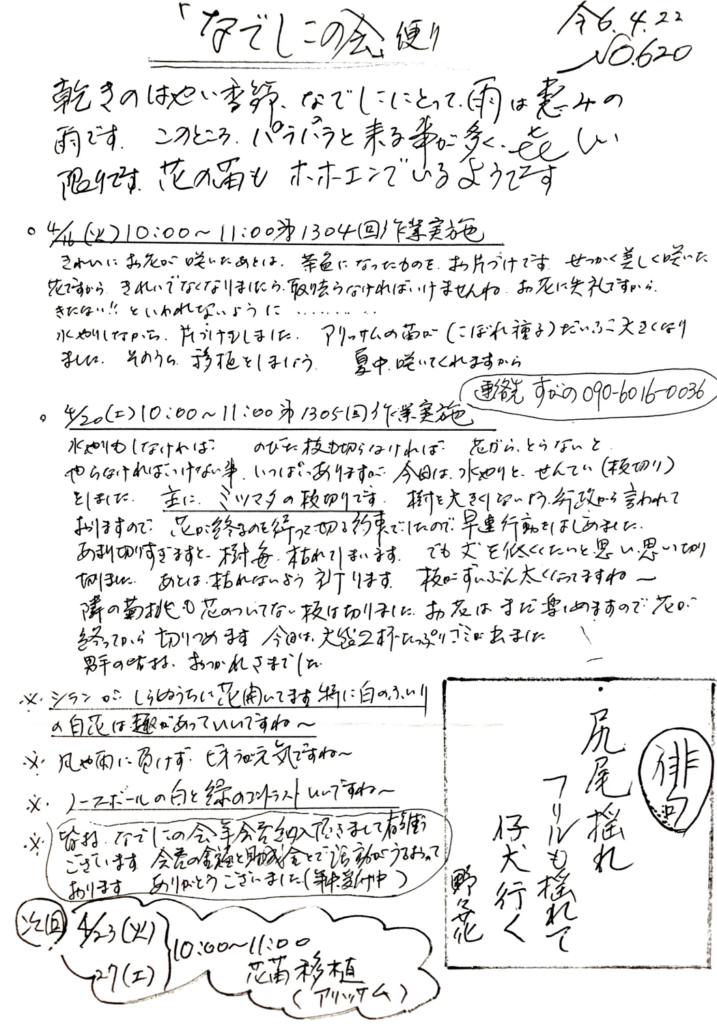 「なでしこの会」便り
令6.4.22
NO.620
乾きのはやい季節、なでしこにとって、雨は恵みの
雨です。このところ、パラパラと来る事が多く、喜しい
限りです。花の苗も ホホエンでいるようです
○ 4/16(火)10:00〜11:00 第1304(回)作業実施
きれいにお花が咲いたあとは、茶色になったものを、お片づけです。せっかく美しく咲いた
花ですから、きれいでなくなりましたら、取り去らなければいけませんね。お花に失礼ですから。
きたない!!といわれないように…………
水やりしながら、片づけをしました。アリッサムの苗が(こぼれ種子)だいぶ大きくなり
ました。そのうち、移植をしましょう。夏中、咲いてくれますから
連絡先 すがの 090-6016-0036
○ 4/20(土)10:00〜11:00 第1305(回)作業実施
水やりもしなければ のびた枝も切らなければ 花がら、とらないと
やらなければいけない事、いっぱいありますが 今日は、水やりと、せんてい(枝切り)
をしました。主に、ミツマタの枝切りです。樹を大きくしないよう、行政から言われて
おりますので 花が終るのを待って切る約束でしたので、早速行動をはじめました。
あまり切りすぎますと、樹毎、枯れてしまいます。でも 丈を低くしたいと思い、思い切り
切りました。あとは、枯れないよう祈ります。枝がずいぶん太くなってますね〜
隣の菊桃も花のついてない枝は切りました。お花はまだ楽しめますので 花が
終ってから 切りつめます 今日は、大袋2杯たっぷりゴミが出ました
男手の皆さま、おつかれさまでした
※ シランが しらぬうちに花開いてます 特に白のふいり
の白花は趣があっていいですね〜
※ 風や雨に負けず、ビオラが元気ですね〜
※ ノースポールの白と緑のコントラストいいですね〜
※ 皆さま、なでしこの会年会費納入頂きまして有難う
ございます 会費の金額と助成金とで活動がうるおって
おります ありがとうございました(受付中)
俳句
尻尾揺れ
フリルも揺れて
仔犬行く
野々花
次回 4/23(火)
27(土)
10:00〜11:00
花苗移植
(アリッサム)